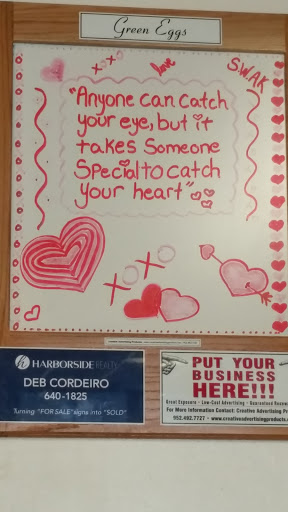 Green Eggs
XOXO
love
SWAK
"Anyone can catch
your eye, but it
takes Someone
Special to catch
your heart"
XO
XO
HARBORSIDE REALTY
DEB CORDEIRO
640-1825
Turning "FOR SALE" signs into "SOLD"
PUT YOUR
BUSINESS
HERE!!!
Great Exposure • Low-Cost Advertising • Guaranteed
For More Information Contact: Creative Advertising
952.492.7727 • www.creativeadvertisingproducts.c